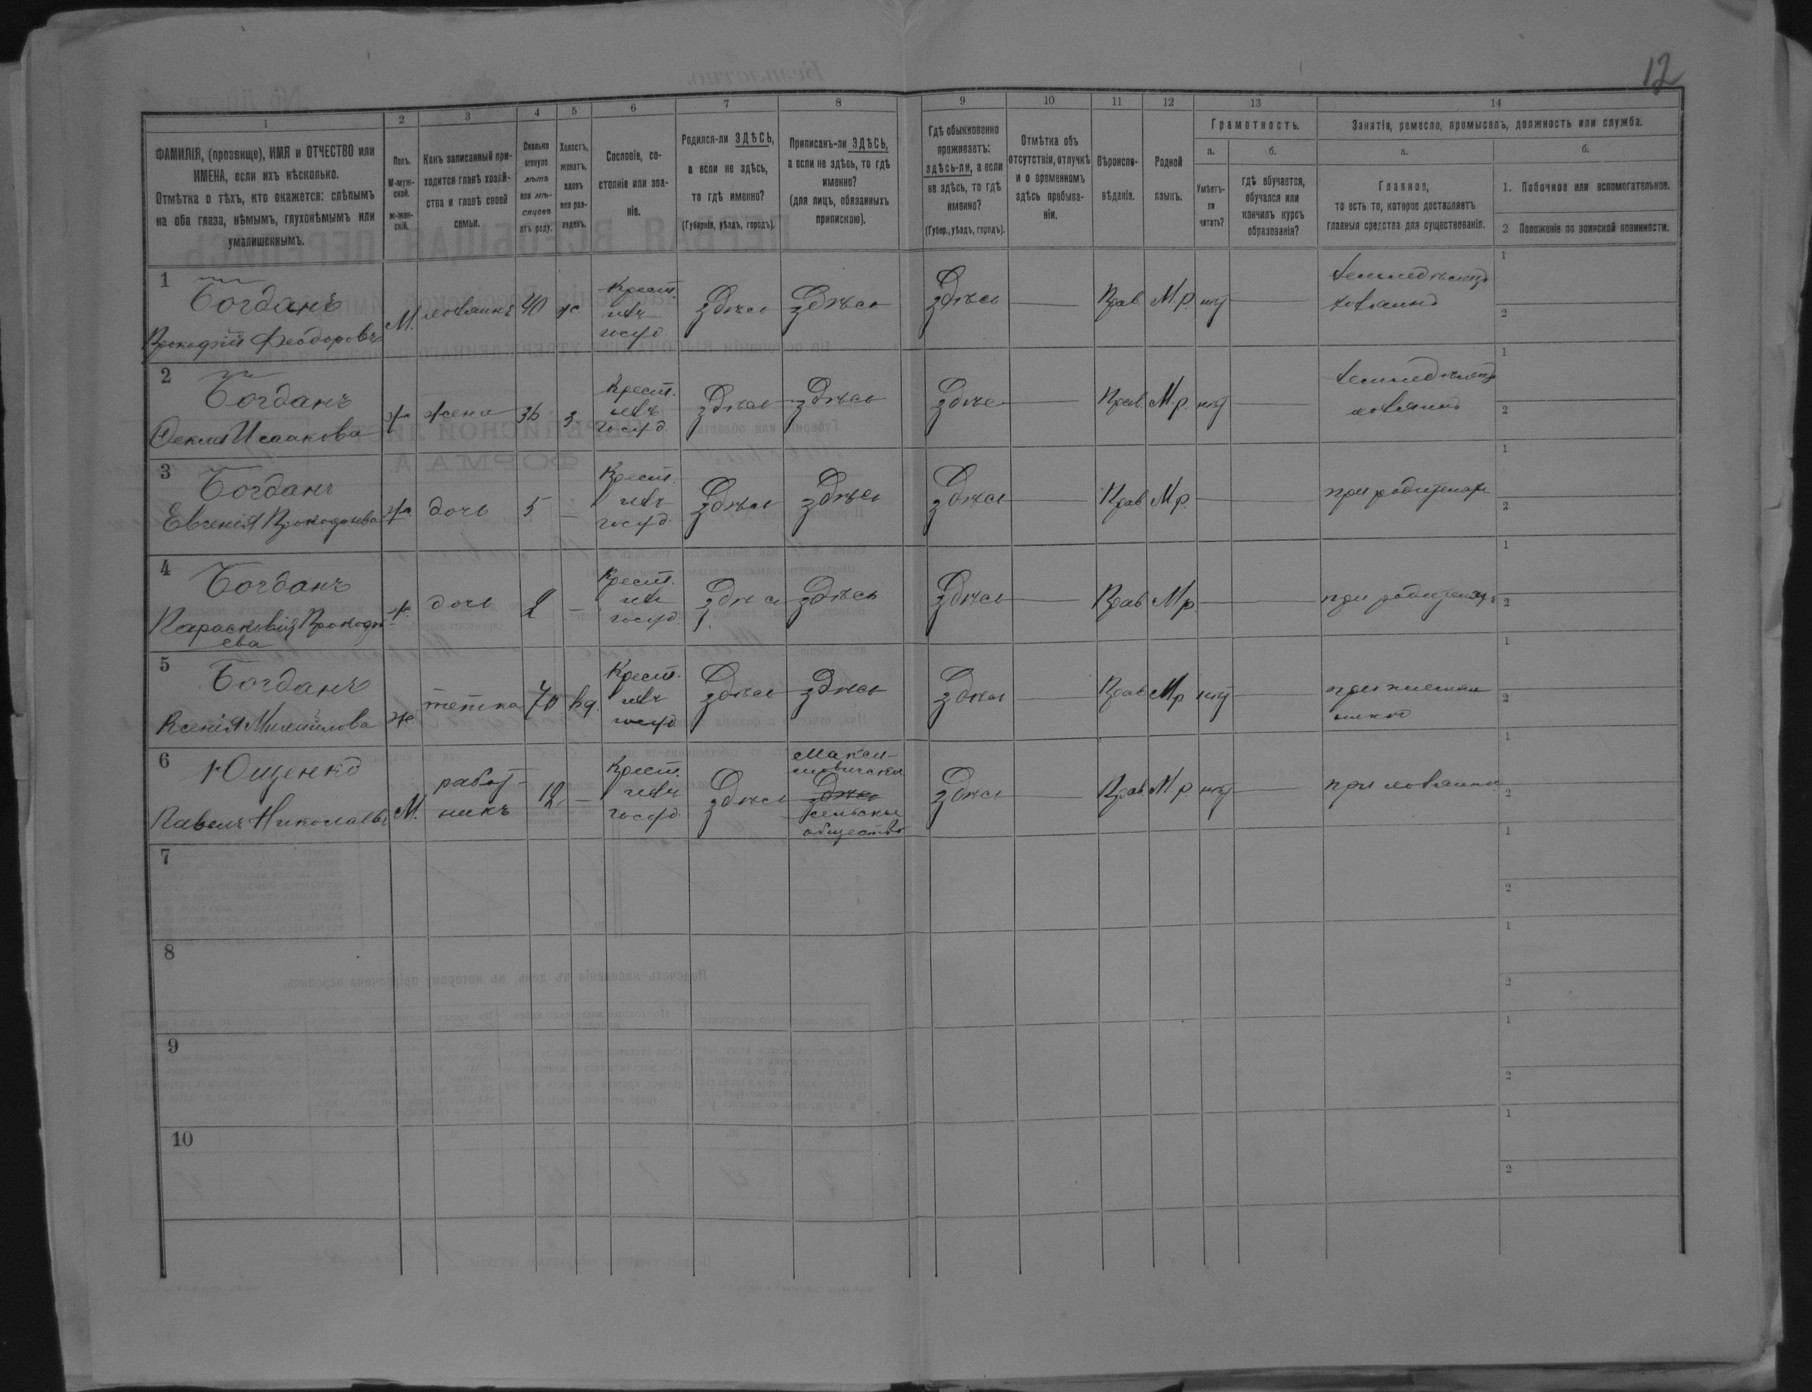 12
1 2 3 4 5 6 7 8 9 10 11 12 13 14
ФАМИЛІЯ, (прозвище), ИМЯ и ОТЧЕСТВО или
ИМЕНА, если ихъ нѣсколько.
Отмѣтка о тѣхъ, кто окажется: слѣпымъ
на оба глаза, нѣмымъ, глухонѣмымъ или
умалишеннымъ.
Полъ.
М-муж-
ской.
ж-жен-
скій.
Какъ записанный при-
ходится главѣ хозяй-
ства и главѣ своей
семьи.
Сколько
минуло
лѣтъ
или мѣ-
сяцевъ
отъ роду.
Холостъ,
женатъ,
вдовъ
или раз-
веденъ.
Сословіе, со-
стояніе или зва-
ніе.
Родился-ли ЗДѢСЬ,
а если не здѣсь,
то гдѣ именно?
(Губернія, уѣздъ, городъ).
Приписанъ-ли ЗДѢСЬ,
а если не здѣсь, то гдѣ
именно?
(для лицъ, обязанныхъ
припискою).
Гдѣ обыкновенно
проживаетъ:
здѣсь-ли, а если
не здѣсь, то гдѣ
именно?
(Губер., уѣздъ, городъ).
Отмѣтка объ
отсутствіи, отлучкѣ
и о временномъ
здѣсь пребыва-
ніи.
Вѣроиспо-
вѣданіе.
Родной
языкъ.
Грамотность.
а.
Умѣетъ-
ли
читать?
б.
гдѣ обучается,
обучался или
кончилъ курсъ
образованія?
Занятія, ремесло, промыселъ, должность или служба.
а.
Главное,
то есть то, которое доставляетъ
главныя средства для существованія.
б.
1. Побочное или вспомогательное.
2 Положеніе по воинской повинности.
1
Богданъ
Прокофій Феодоровъ
М. хозяинъ 40 ж Крест. изъ госуд. здѣсь здѣсь здѣсь — Прав. М.р. нѣт —
1
2
2
Богданъ
Фекла Исаакова
ж жена 36 з. Крест. изъ госуд. здѣсь здѣсь здѣсь — Прав. М.р. нѣт —
1
2
3
Богданъ
Евгенія Прокофьева
ж дочь 5 — Крест. изъ госуд. здѣсь здѣсь здѣсь — Прав М.р. — при родителяхъ
1
2
4
Богданъ
Параскевія Прокофь
ева
ж. дочь 2 — Крест. изъ госуд. здѣсь здѣсь здѣсь — Прав М.р. — при родителяхъ
1
2
5
Богданъ
Ксенія Михайлова
ж тетка 70 вд. Крест. изъ госуд. здѣсь здѣсь здѣсь — Прав М.р. нѣт —
1
2
6
Ющенко
Павелъ Николаевъ
М. работ-
никъ 12 — Крест. изъ госуд. здѣсь
здѣсь
сельское
общество
здѣсь — Прав. М.р. нѣт — при хозяинѣ
1
2
7
1
2
8
1
2
9
1
2
10
1
2